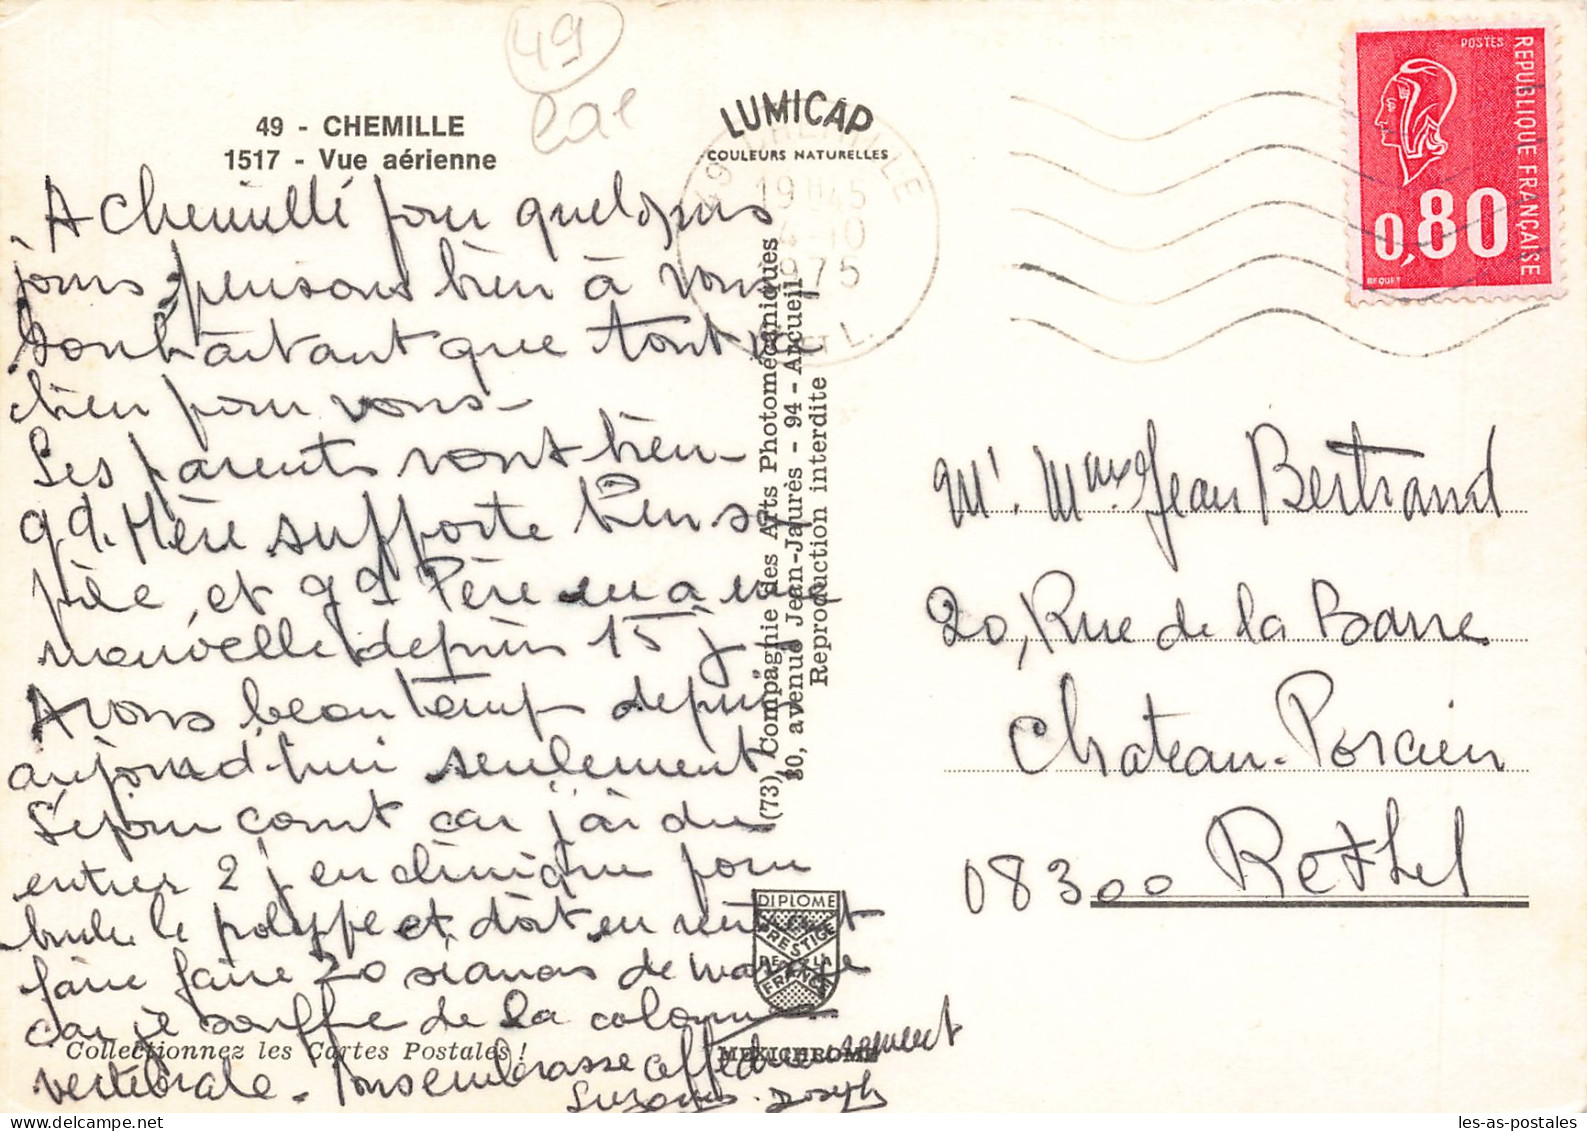 49
49 - CHEMILLE
1517 - Vue aérienne
LUMICAP
COULEURS NATURELLES
49 CHEMILLE
19H15
4-10
1975
POSTES
REPUBLIQUE FRANÇAISE
0,80
BEQUET
A Chemillé pour quelques
jours pensons bien à vous
Souhaitant que tout va
bien pour vous -
Les parents vont bien -
gd. Mère supporte bien sa
pile, et gd Père en a une
nouvelle depuis 15 j
Avons beau temps depuis
aujourd'hui seulement
Séjour court car j'ai du
entrer 2 j en clinique pour
bruler le polype et doit en rentrant
faire faire 20 séances de massage
car je souffre de la colonne
vertébrale - Vous embrasse affectueusement
Suzanne - Joseph
(73) Compagnie des Arts Photomécaniques
30, avenue Jean-Jaurès - 94 - Arcueil
Reproduction interdite
DIPLOME
PRESTIGE
DE LA
FRANCE
Collectionnez les Cartes Postales !
MEXICHROME
Mr. Mme Jean Bertrand
20, Rue de la Barre
Chateau-Porcien
08300 Rethel
les-as-postales.com